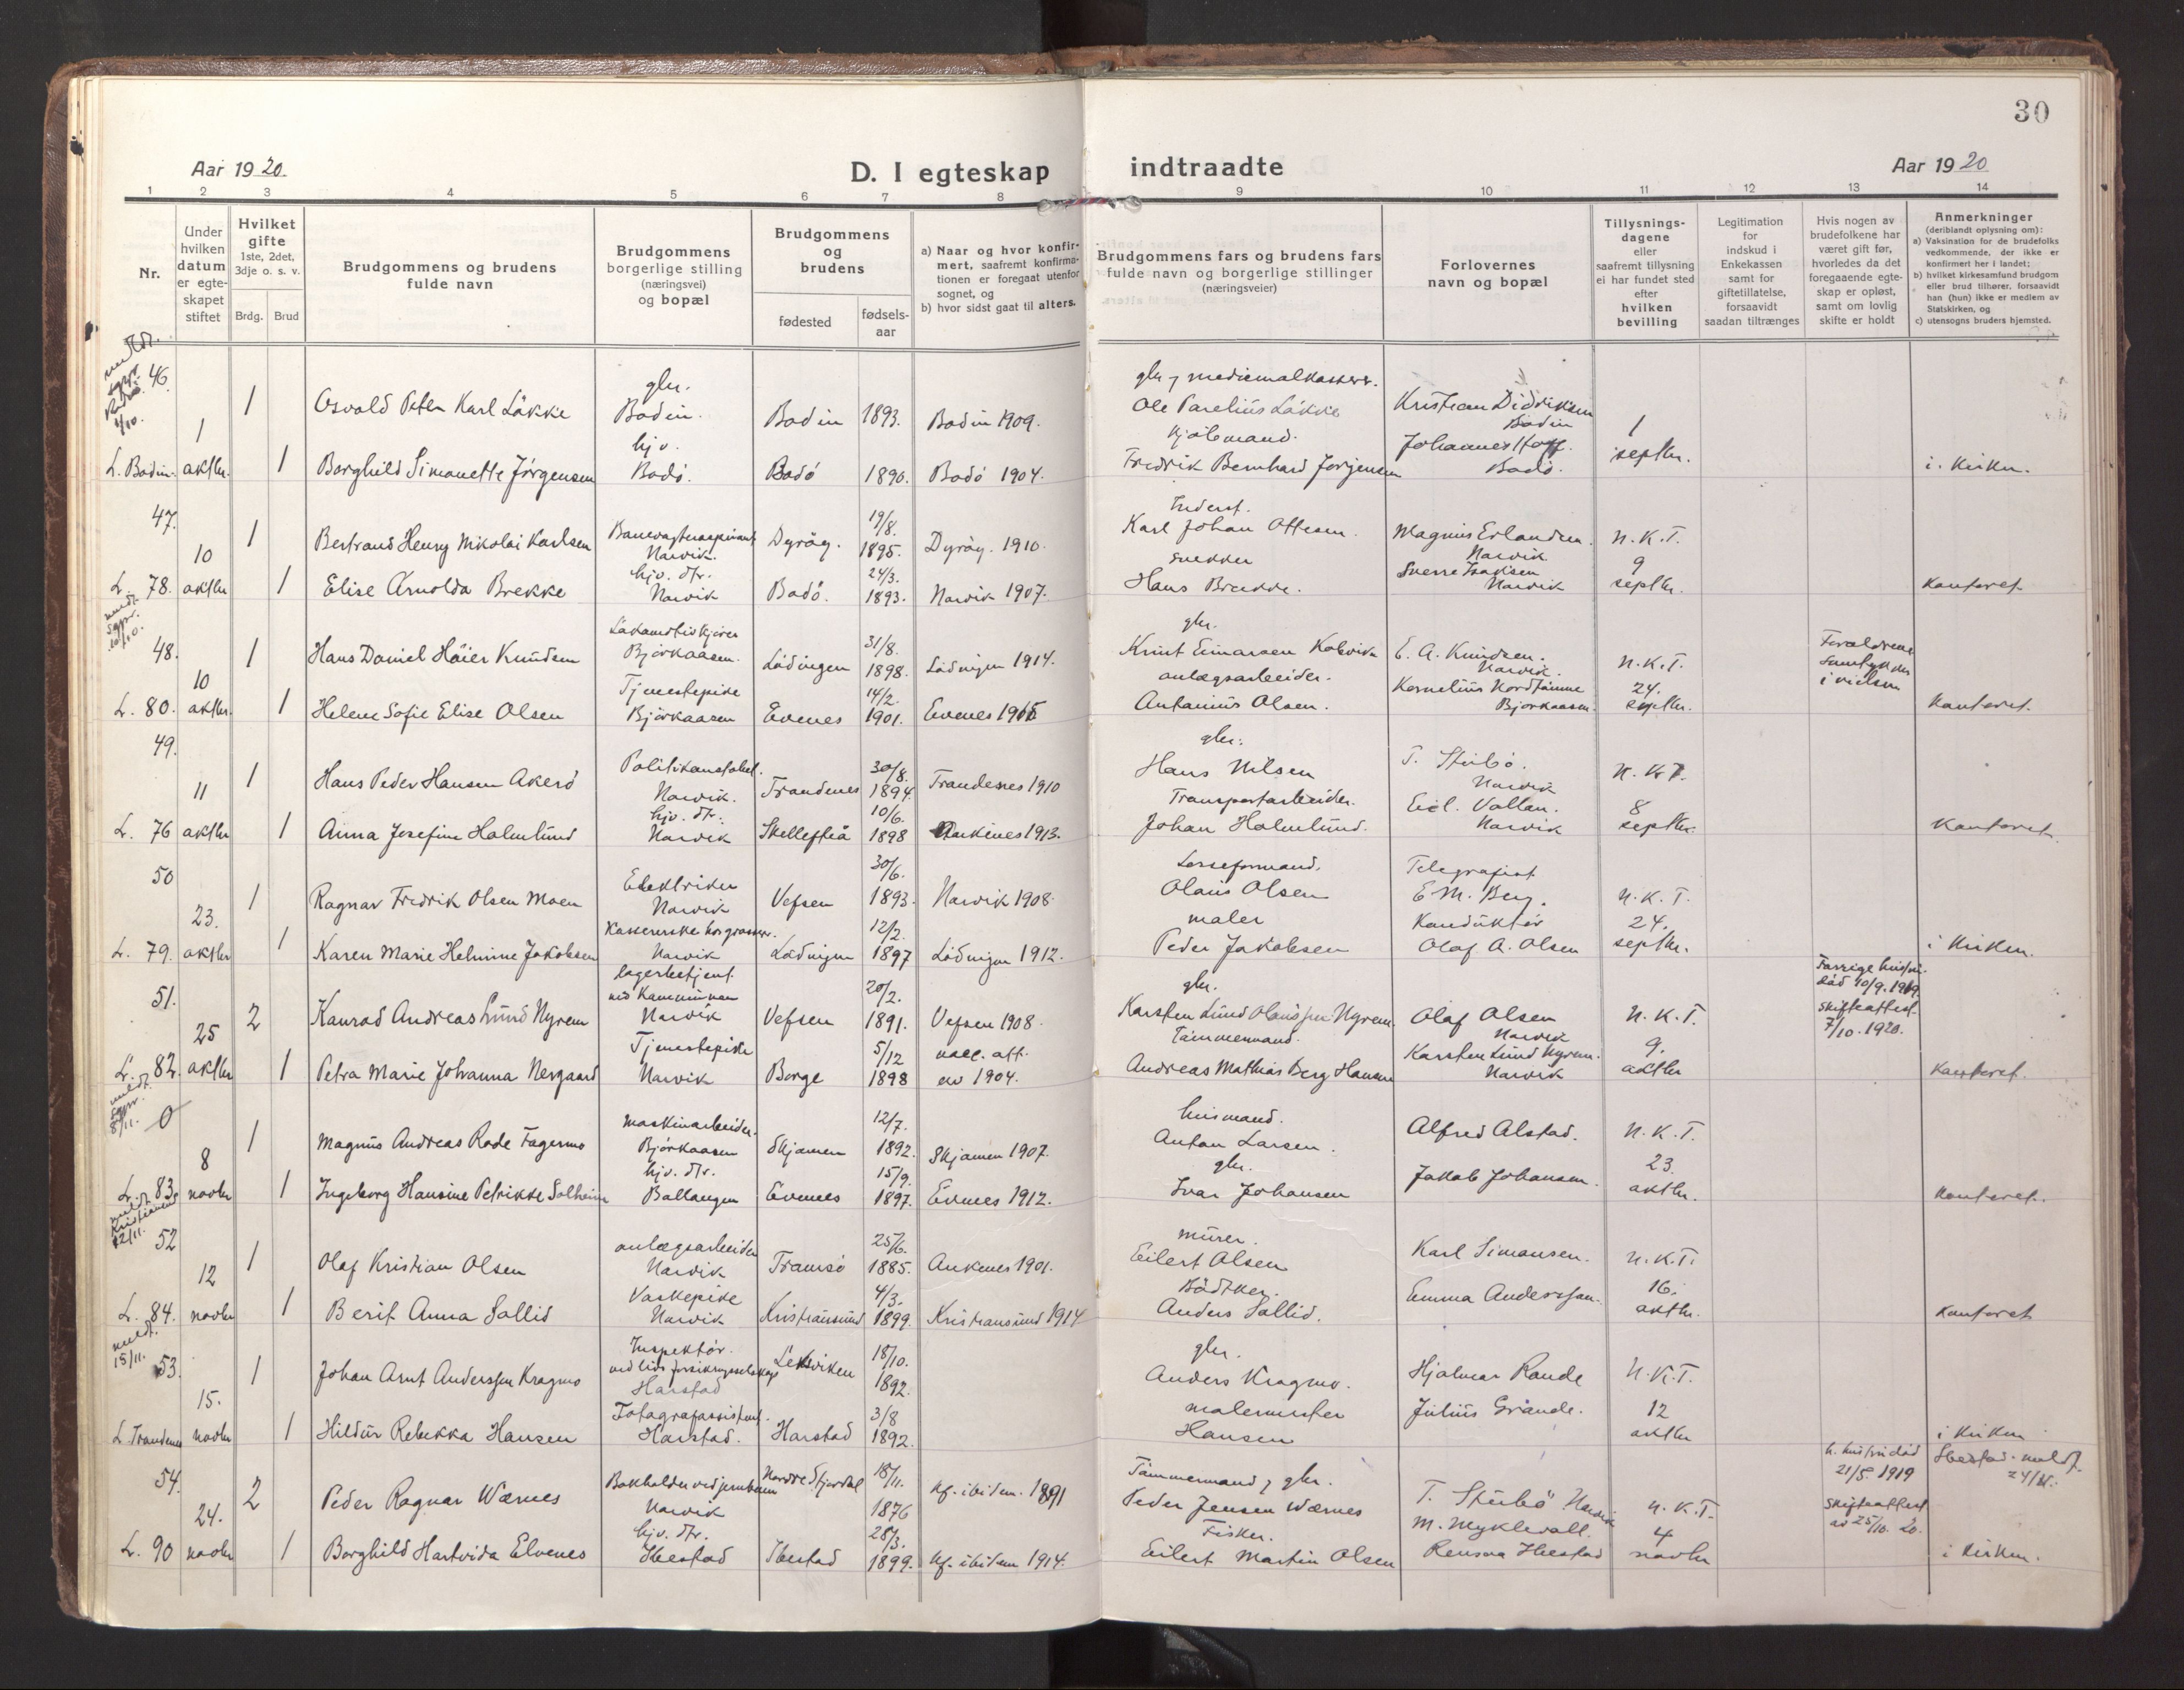 30
Aar 1920.
D. I egteskap indtraadte
Aar 1920
1 2 3 4 5 6 7 8 9 10 11 12 13 14
Nr.
Under hvilken datum er egte-skapet stiftet
Hvilket gifte 1ste, 2det, 3dje o. s. v.
Brdg. Brud
Brudgommens og brudens fulde navn
Brudgommens borgerlige stilling (næringsvei) og bopæl
Brudgommens og brudens
fødested
fødsels-aar
a) Naar og hvor konfir-mert, saafremt konfirma-tionen er foregaat utenfor sognet, og
b) hvor sidst gaat til alters.
Brudgommens fars og brudens fars fulde navn og borgerlige stillinger (næringsveier)
Forlovernes navn og bopæl
Tillysnings-dagene eller saafremt tillysning ei har fundet sted efter hvilken bevilling
Legitimation for indskud i Enkekassen samt for giftetillatelse, forsaavidt saadan tiltrænges
Hvis nogen av brudefolkene har været gift før, hvorledes da det foregaaende egte-skap er opløst, samt om lovlig skifte er holdt
Anmerkninger (deriblandt oplysning om):
a) Vaksination for de brudefolks vedkommende, der ikke er konfirmert her i landet;
b) hvilket kirkesamfund brudgom eller brud tilhører, forsaavidt han (hun) ikke er medlem av Statskirken, og
c) utensogns bruders hjemsted.
46. 1 Osvald Peter Karl Løkke gbr. Bodin. Bodin 1893. Bodin 1909. Ole Parelius Løkke Kristian Didriksen Bodin 1
L. Bodin. 1 oktbr. 1 Borghild Simonette Jørgensen hjv. Bodø. Bodø 1890. Bodø 1904. Kjøbmand. Fredrik Bernhard Jørgensen Johannes Hoff. Bodø. septbr. i. kirken.
47. 1 Bertrand Henry Nikolai Karlsen Banevogteraspirant Narvik. Dyrøy. 19/8. 1895. Dyrøy. 1910. Inderst. Karl Johan Ottesen. Magnus Erlandsen. Narvik. N.K.T. 9
L. 78. 10 oktbr 1 Elise Arnolda Brekke hjv. dtr. Narvik Bodø. 24/3. 1893. Narvik 1907. snekker Hans Brekke. Sverre Isaksen Narvik septbr. Kontoret
48. 1 Hans Daniel Høier Knudsen Lokomotivkjører Bjørkaasen. Lødingen 31/8. 1898. Lødingen 1914. gbr. Knut Einarsen Kobvik E. A. Knudsen. Narvik. N.K.T. Forældrenes samtykke i vielsen
L. 80. 10 oktbr. 1 Helene Sofie Elise Olsen Tjenestepike Bjørkaasen Evenes 14/2. 1901. Evenes 1915 anlægsarbeider. Antonius Olsen. Kornelius Nordtømme Bjørkaasen. 24. septbr. Kontoret.
49. 1 Hans Peder Hansen Akerø Politikonstabel. Narvik. Trondenes 30/8. 1894. Trondenes 1910 gbr. Hans Nilsen T. Stubø. Narvik N.K.T.
L. 76 11 oktbr 1 Anna Josefine Holmlund hjv. dtr. Narvik Skellefteå 10/6. 1898 Ankenes 1913. Transportarbeider. Johan Holmlund. Narvik 8 septbr. Kontoret.
50 1 Ragnar Fredrik Olsen Moen Elektriker Narvik Vefsen 30/6. 1893. Narvik 1908. Losseformand. Olaus Olsen Telegrafist E. M. Berg. N.K.T.
L. 79. 23. oktbr 1 Karen Marie Helmine Jakobsen Narvik Lødingen 12/2. 1897 Lødingen 1912. maler Peder Jakobsen Konduktør Olaf A. Olsen 24. septbr. i Kirken.
51. 2 Konrad Andreas Lund Nyrem lagerbetjent ved Kommunen Narvik Vefsen 20/2. 1891. Vefsen 1908. gbr. Karsten Lund Olaussen Nyrem Olaf Olsen Narvik N.K.T. Forrige hustru død 10/9. 1919. skifteattest 7/10. 1920.
L. 82. 25 oktbr 1 Petra Marie Johanna Nergaard Tjenestepike Narvik Borge 5/12 1898 vacc. att. av 1904. Tømmermand. Andreas Mathias Berg Hansen Karsten Lund Nyrem. Narvik 9. oktbr Kontoret.
0 1 Magnus Andreas Rode Fagermo maskinarbeider. Bjørkaasen Skjomen 12/7. 1892. Skjomen 1907. husmand. Anton Larsen. Alfred Alstad. N.K.T.
L. 83. 8 novbr 1 Ingeborg Hansine Petrikke Solheim hjv. dtr. Ballangen Evenes 15/9. 1897. Evenes 1912. gbr. Ivar Johansen Jakob Johansen. 23. oktbr. Kontoret.
52 1 Olaf Kristian Olsen anlægsarbeider Narvik Tromsø 25/6. 1885. Ankenes 1901. murer. Eilert Olsen Karl Simonsen. N.K.T.
L. 84. 12 novbr 1 Berit Anna Sollid Vaskepike Narvik Kristiansund 4/3. 1899. Kristiansund 1914 Bødtker. Anders Sollid. Emma Anderssen. 16. oktbr. Kontoret
53. 1 Johan Arnt Anderssen Kragmo Inspektør. ved livsforsikringsselskap Harstad Leksviken 18/10. 1892. gbr. Anders Kragmo. Hjalmar Rande N.K.T.
L. Trondenes 15. novbr 1 Hildur Rebekka Hansen Fotografassistent. Harstad. Harstad 3/8 1892. malermester Hansen Julius Grande. 12 oktbr i kirken
54. 2 Peder Ragnar Wærnes Bokholder ved jernbanen Narvik Nordre Stjørdal 18/11. 1876 kf. ibidem. 1891 Tømmermand, gbr. Peder Jensen Wærnes T. Stubø Narvik N.K.T. h. hustru død 21/5. 1919 skifteattest av 25/10. 20. Ibestad. meldt.
L. 90 24. novbr 1 Borghild Hartvida Elvenes hjv. dtr. Ibestad Ibestad 28/3. 1899. kf. ibidem 1914. Fisker. Eilert Martin Olsen M. Myklevoll. Rensaa Ibestad 4 novbr i kirken.